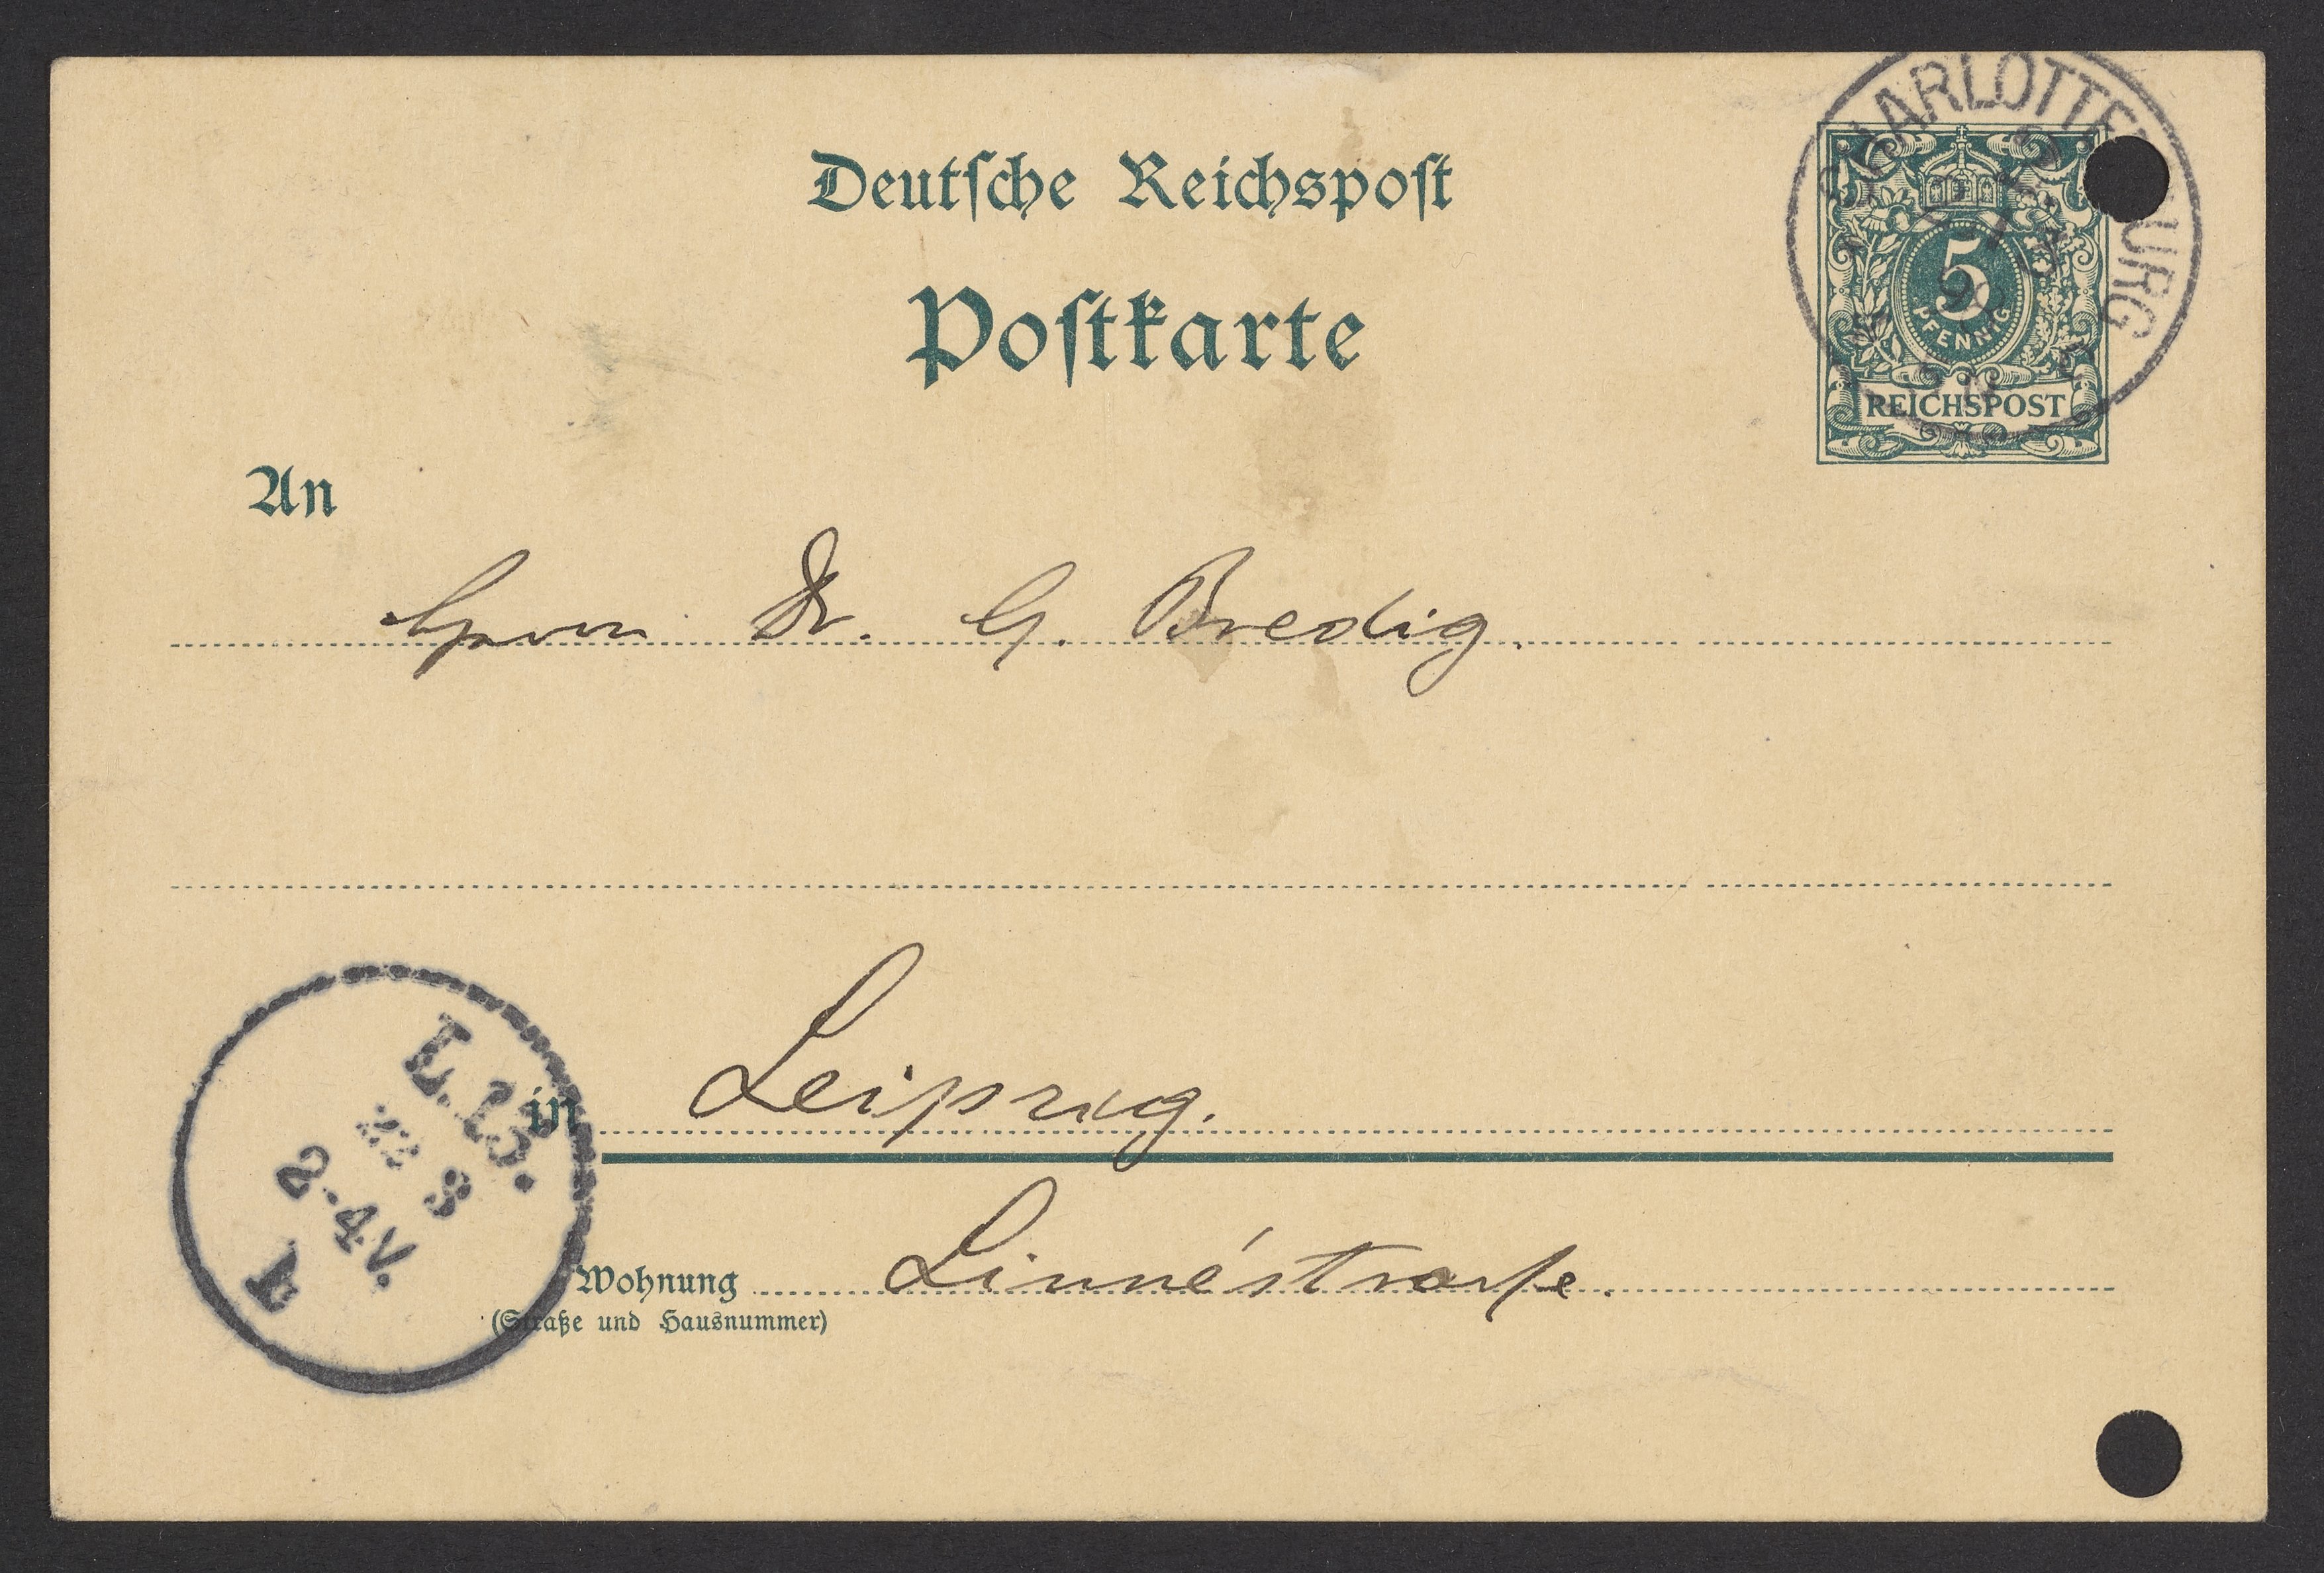 Deutsche Reichspost
Postkarte
5
PFENNIG
REICHSPOST
An
Herrn Dr. G. Bredig.
in Leipzig.
Wohnung Linnéstraße.
(Straße und Hausnummer)
L. 13.
8
2-4V.